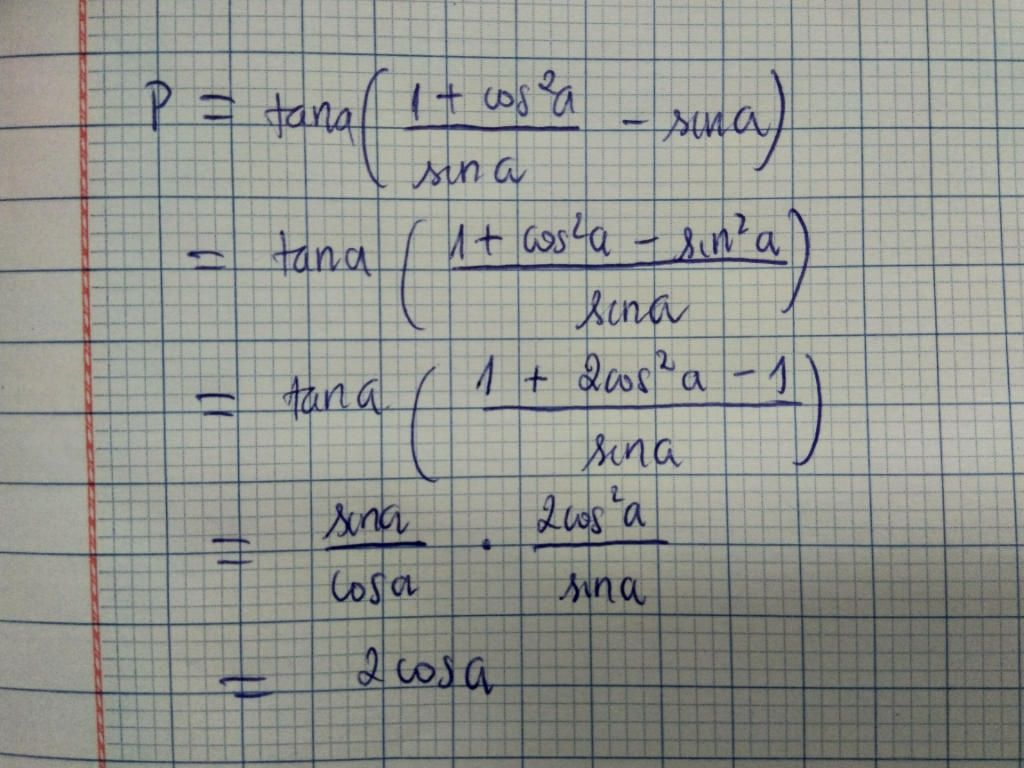 P = tana( (1 + cos²a)/(sina) - sina)
= tana ( (1 + cos²a - sin²a)/(sina) )
= tana ( (1 + 2cos²a - 1)/(sina) )
= (sina)/(cosa) . (2cos²a)/(sina)
= 2cosa